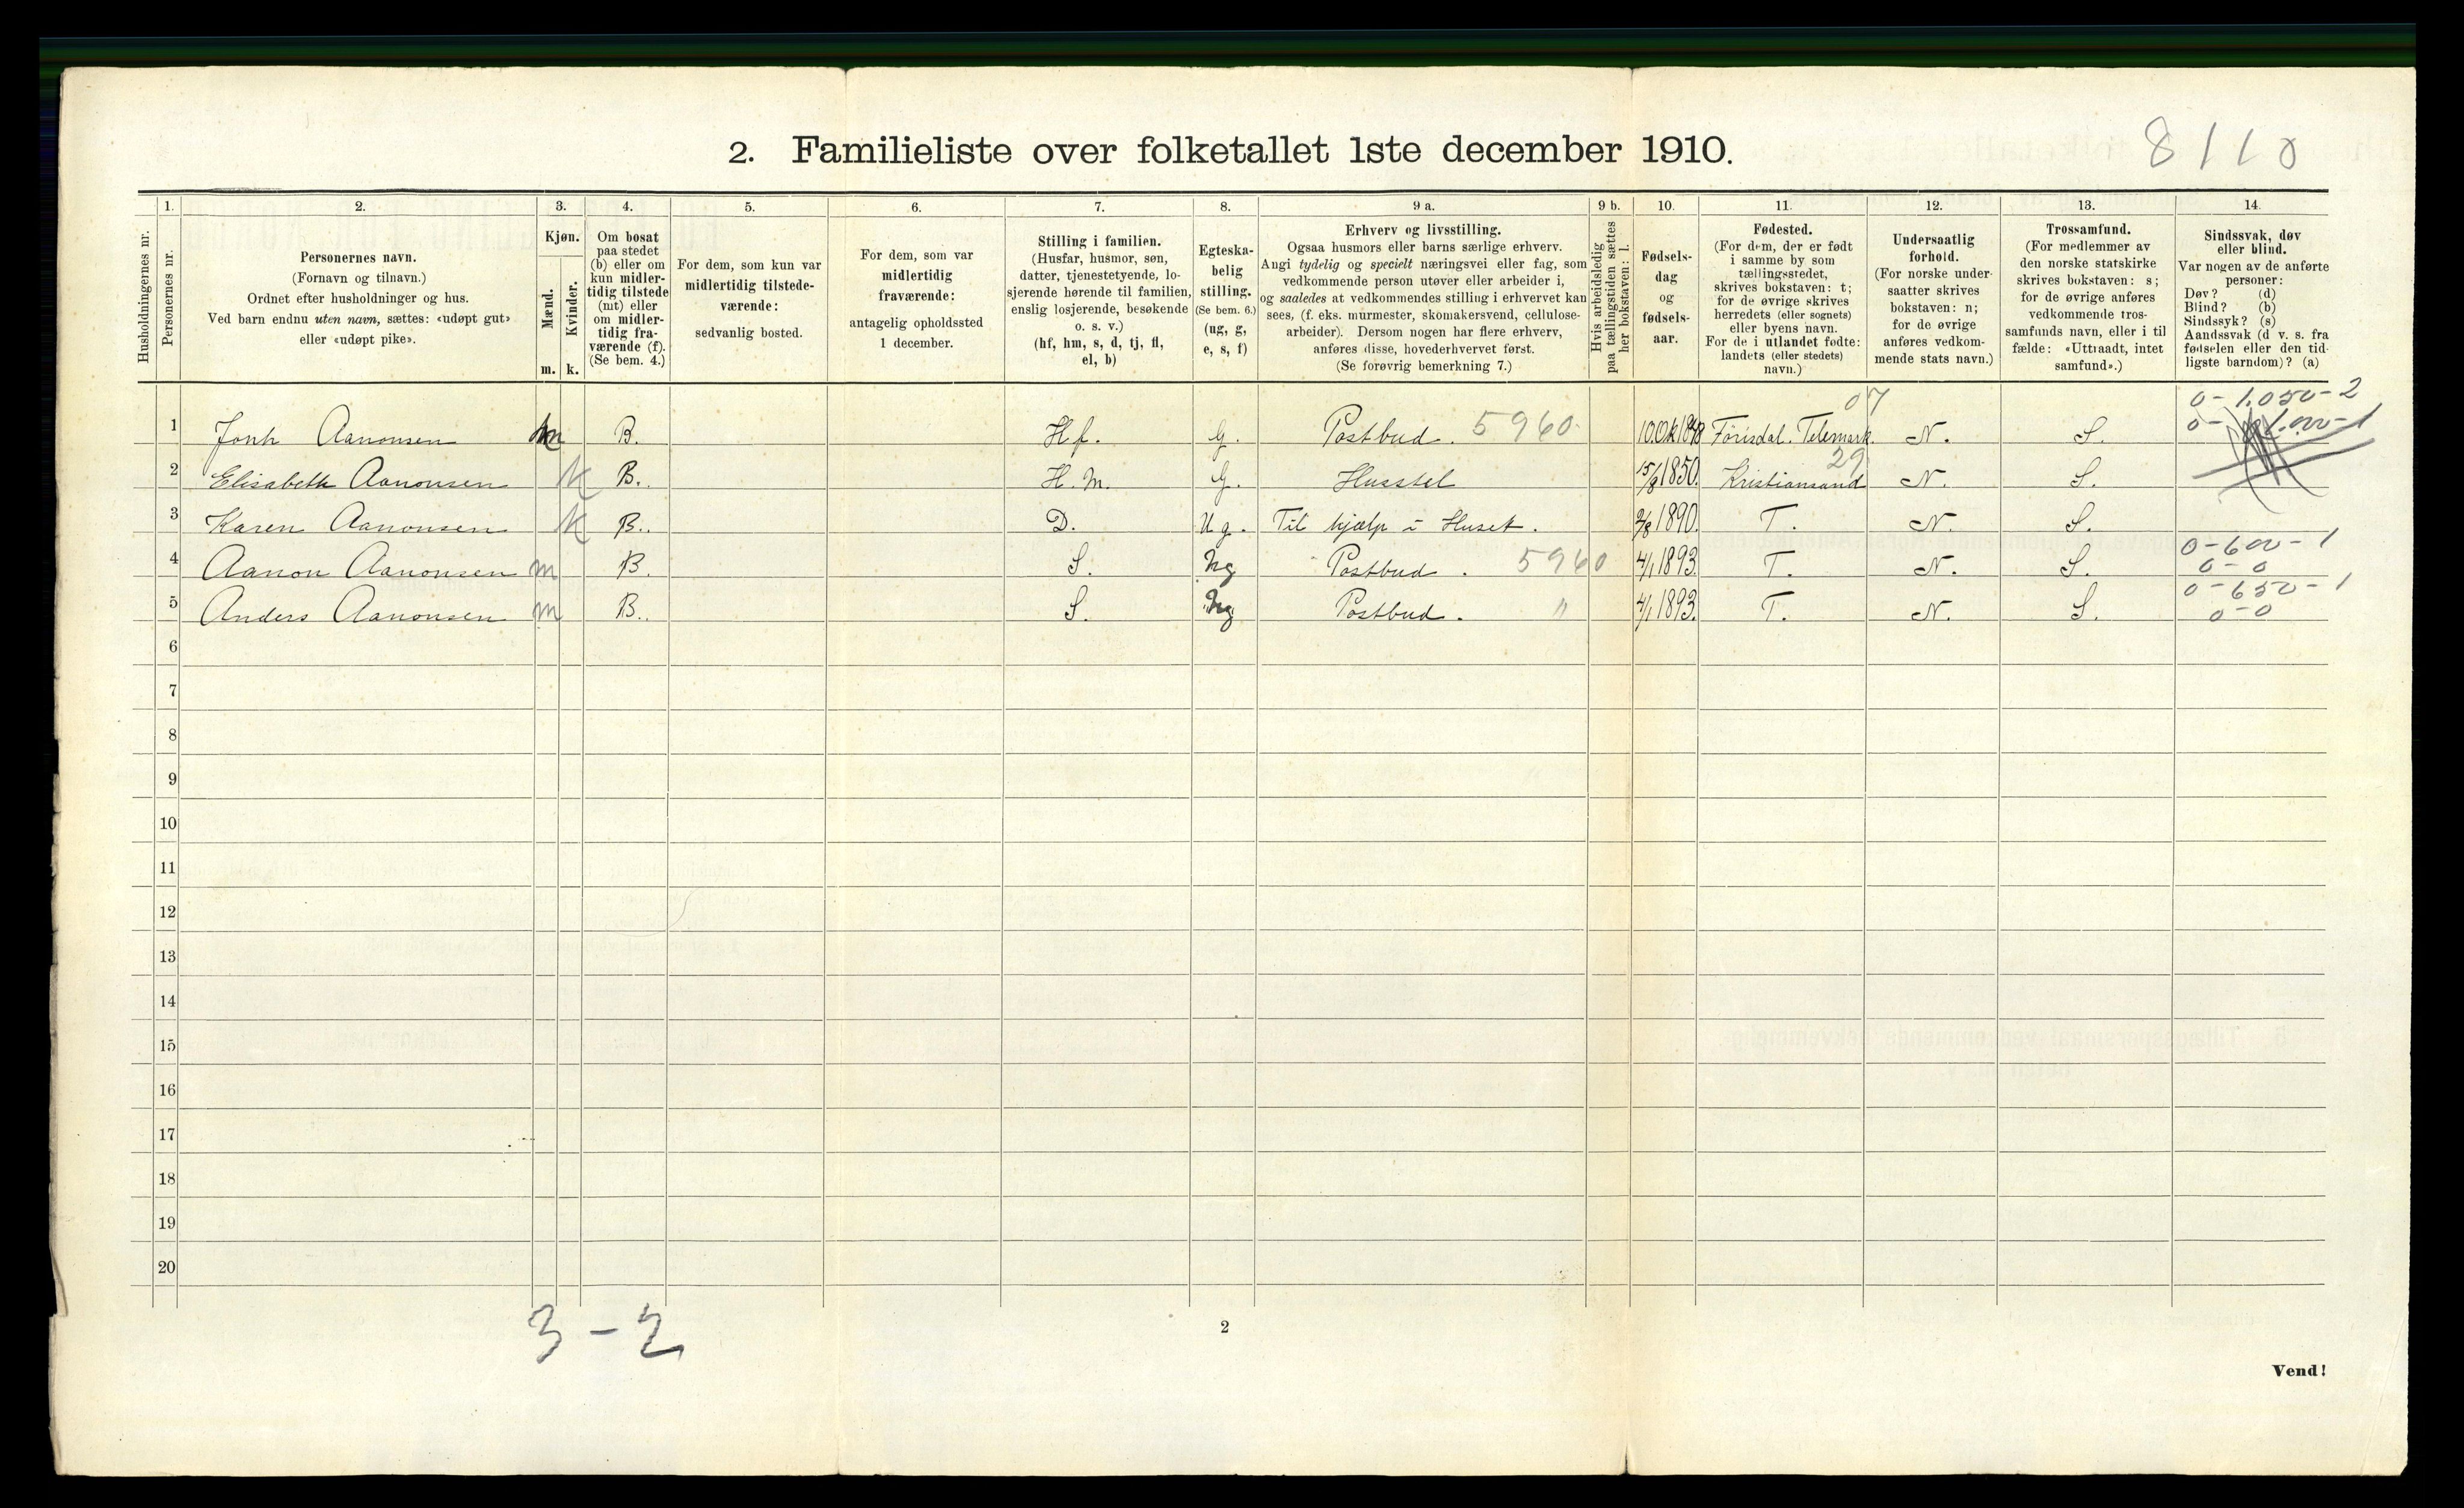 2. Familieliste over folketallet 1ste december 1910.
8110
Husholdningernes nr.
1.
Personernes nr.
2.
Personernes navn.
(Fornavn og tilnavn.)
Ordnet efter husholdninger og hus.
Ved barn endnu uten navn, sættes: «udøpt gut»
eller «udøpt pike».
3.
Kjøn.
Mænd.
Kvinder.
m. k.
4.
Om bosat
paa stedet
(b) eller om
kun midler-
tidig tilstede
(mt) eller
om midler-
tidig fra-
værende (f).
(Se bem. 4.)
5.
For dem, som kun var
midlertidig tilstede-
værende:
sedvanlig bosted.
6.
For dem, som var
midlertidig
fraværende:
antagelig opholdssted
1 december.
7.
Stilling i familien.
(Husfar, husmor, søn,
datter, tjenestetyende, lo-
sjerende hørende til familien,
enslig losjerende, besøkende
o. s. v.)
(hf, hm, s, d, tj, fl,
el, b)
8.
Egteska-
belig
stilling.
(Se bem. 6.)
(ug, g,
e, s, f)
9 a.
Erhverv og livsstilling.
Ogsaa husmors eller barns særlige erhverv.
Angi tydelig og specielt næringsvei eller fag, som
vedkommende person utøver eller arbeider i,
og saaledes at vedkommendes stilling i erhvervet kan
sees, (f. eks. murmester, skomakersvend, cellulose-
arbeider). Dersom nogen har flere erhverv,
anføres disse, hovederhvervet først.
(Se forøvrig bemerkning 7.)
9 b.
Hvis arbeidsledig
paa tællingstiden sættes
her bokstaven: l.
10.
Fødsels-
dag
og
fødsels-
aar.
11.
Fødested.
(For dem, der er født
i samme by som
tællingsstedet,
skrives bokstaven: t;
for de øvrige skrives
herredets (eller sognets)
eller byens navn.
For de i utlandet fødte:
landets (eller stedets)
navn.)
12.
Undersaatlig
forhold.
(For norske under-
saatter skrives
bokstaven: n;
for de øvrige
anføres vedkom-
mende stats navn.)
13.
Trossamfund.
(For medlemmer av
den norske statskirke
skrives bokstaven: s;
for de øvrige anføres
vedkommende tros-
samfunds navn, eller i til
fælde: «Uttraadt, intet
samfund».)
14.
Sindssvak, døv
eller blind.
Var nogen av de anførte
personer:
Døv? (d)
Blind? (b)
Sindssyk? (s)
Aandssvak (d v. s. fra
fødselen eller den tid-
ligste barndom)? (a)
07 0-1.050-2
1 Jonh Aanonsen m B. Hf. G. Postbud. 5960. 10.Ok1848 Förisdal. Telemark. N. S.
29
2 Elisabeth Aanonsen K B. H.M. G. Husstel 15/8 1850. Kristiansand N. S.
3 Karen Aanonsen K B. D. Ug. Til hjælp i Huset. 1890. T. N. S.
0-600-1
4 Aanon Aanonsen m B. S. Ug Postbud. 5960 4/1 1893. T. N. S. 0-0
0-650-1
5 Anders Aanonsen m B. S. Ug Postbud. " 4/1 1893. T. N. S. 0-0
6
7
8
9
10
11
12
13
14
15
16
17
18
19
20
3-2
2
Vend!